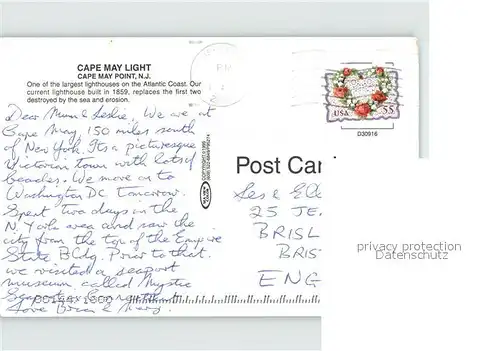 CAPE MAY LIGHT
CAPE MAY POINT, N.J.
One of the largest lighthouses on the Atlantic Coast. Our
current lighthouse built in 1859, replaces the first two
destroyed by the sea and erosion.
Dear Mum & Leslie, We are at
Cape May, 150 miles south
of New York. Its a picturesque
Victorian town with lots of
beaches. We move on to
Washington DC tomorrow.
Spent two days in the
N. York area and saw the
city from the top of the Empire
State BLDG. Prior to that
we visited a seaport
museum called Mystic
Seaport in Connecticut
Love Brian & Mary
USA 55
D30916
Post Car
Les &
25
BRISL
BRIS
ENG
privacy protection
Datenschutz